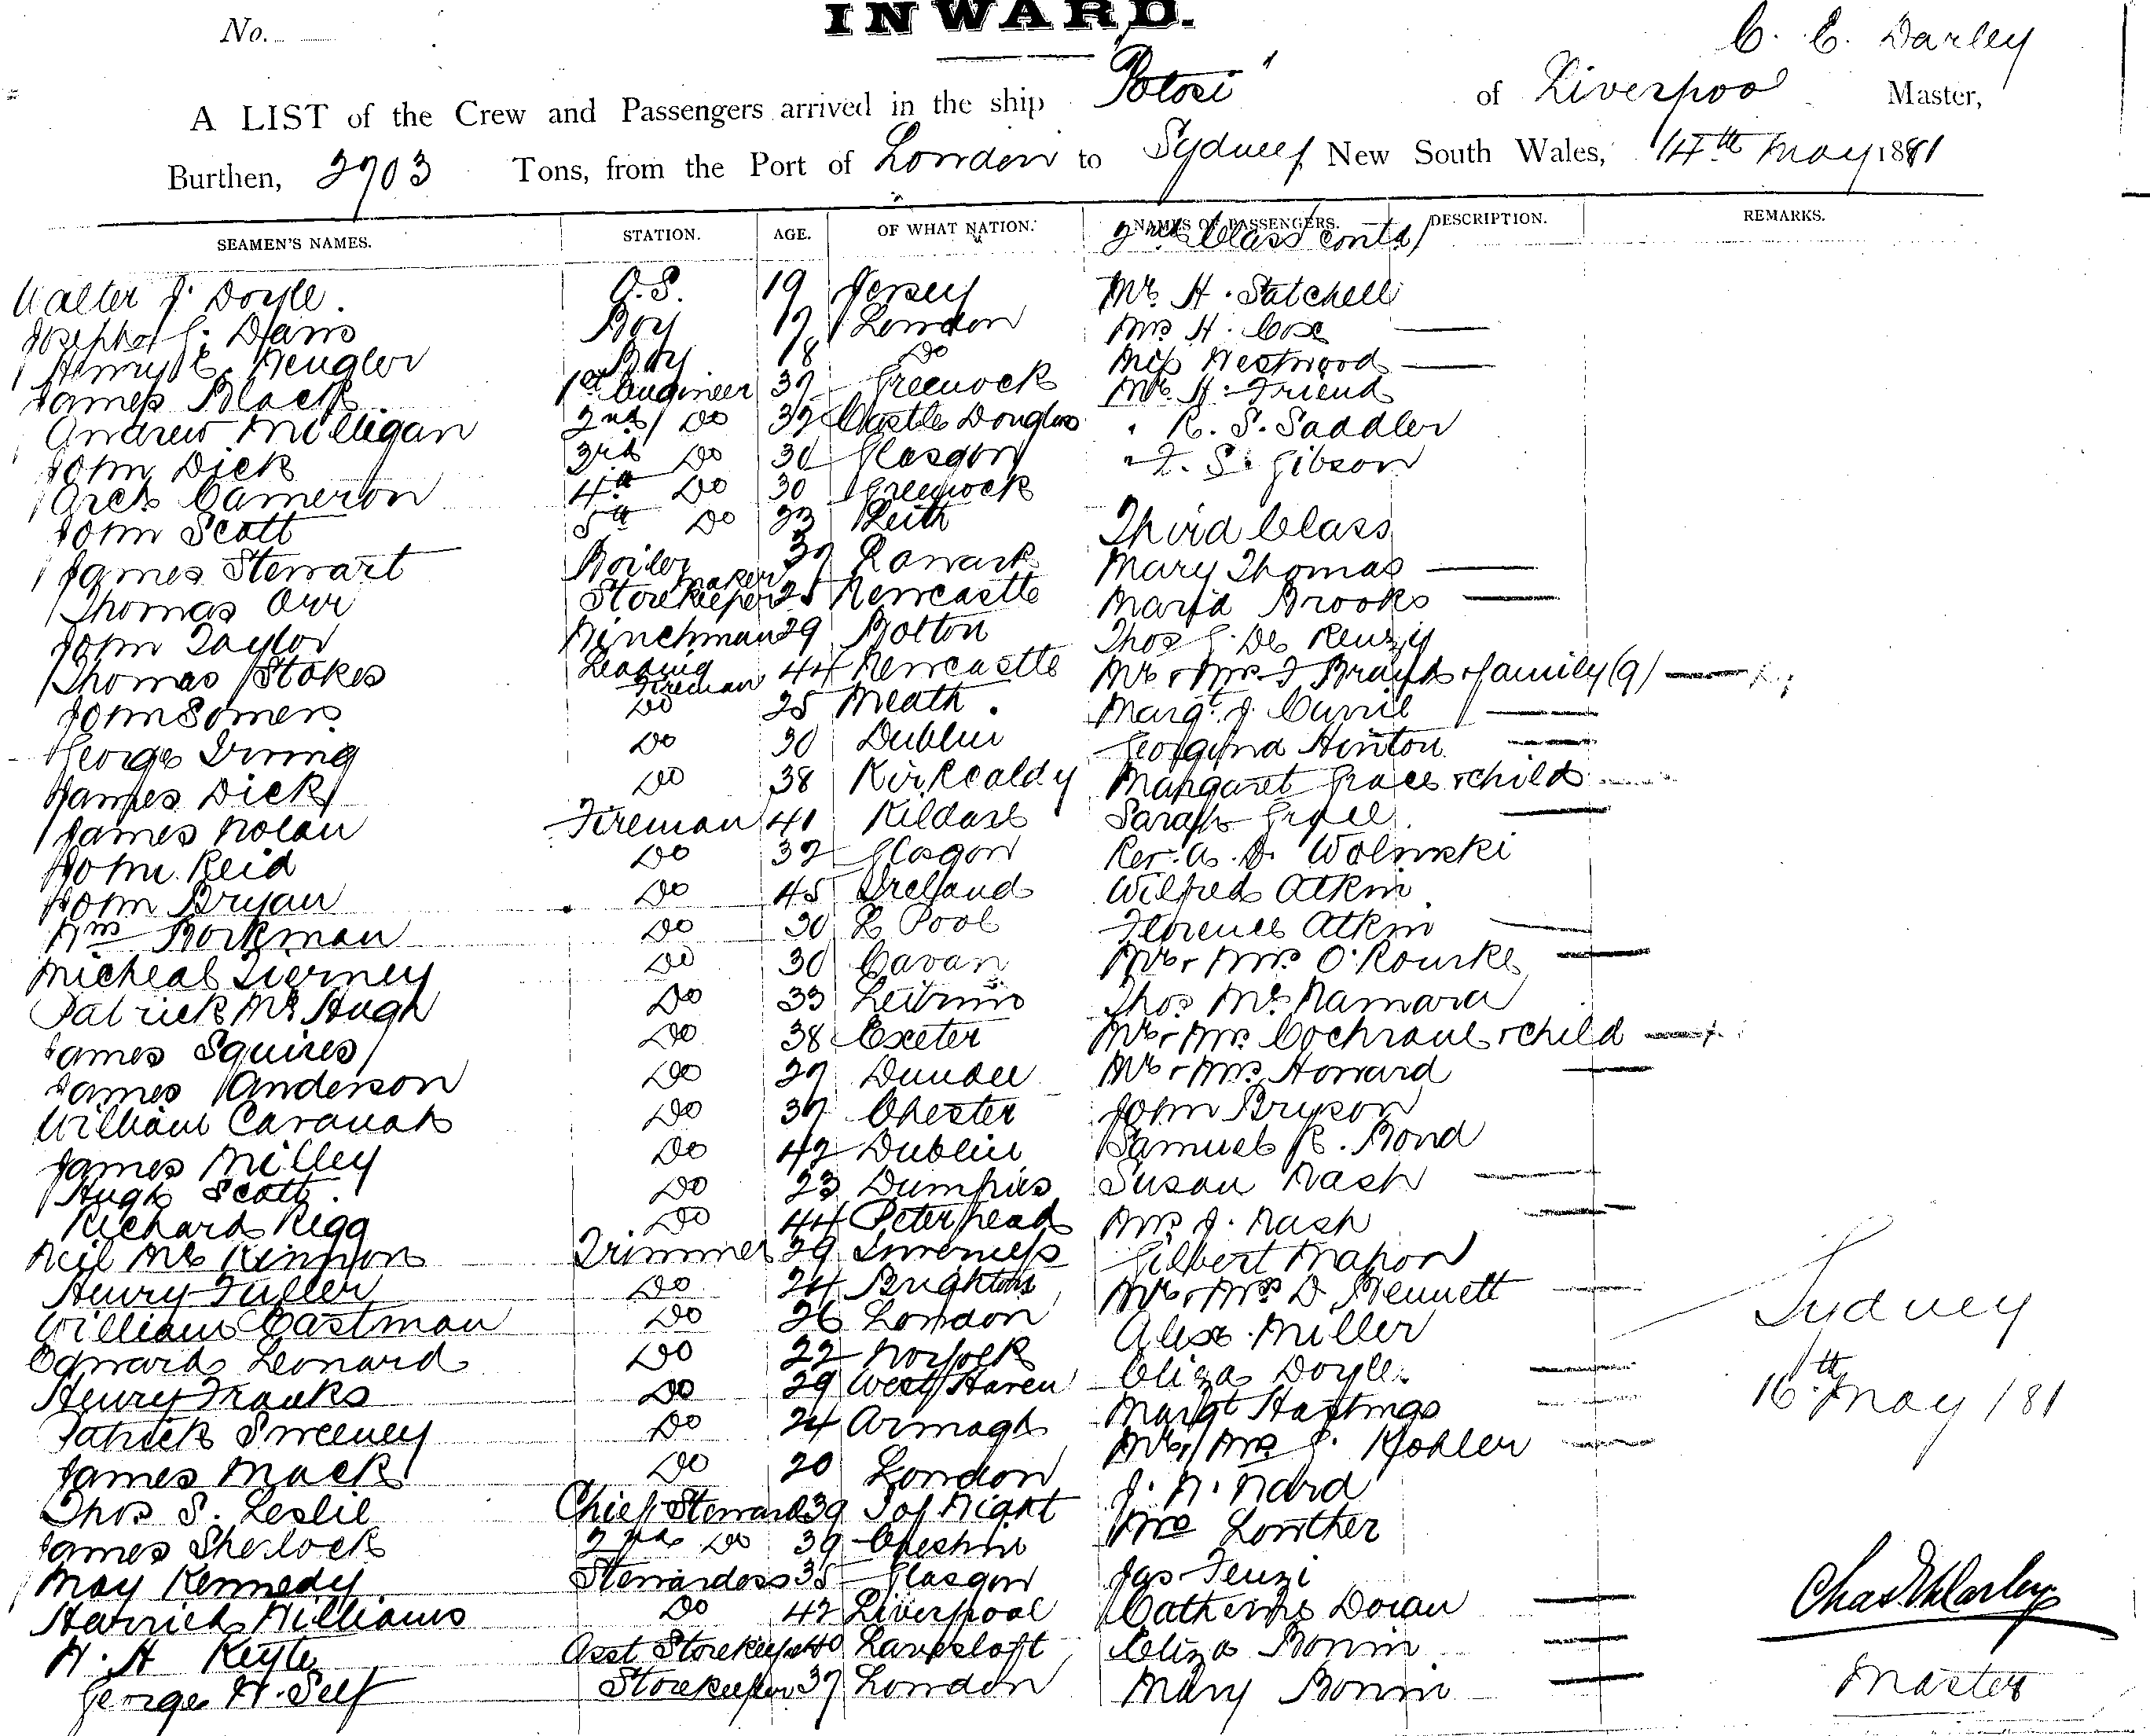 INWARD.
No.
C. E. Darley
A LIST of the Crew and Passengers arrived in the ship "Potosi" of Liverpool Master,
Burthen, 2703 Tons, from the Port of London to Sydney, New South Wales, 14th May 1881
SEAMEN'S NAMES. STATION. AGE. OF WHAT NATION. NAMES OF PASSENGERS. DESCRIPTION. REMARKS.
2nd Class contd/
Walter J. Doyle. O.S. 19 Jersey Mr. H. Satchell
Joseph G. Daws Boy 17 London Mrs H. Cox
Henry C. Wengler Boy 18 Do Miss Westwood
James Black 1st Engineer 37 Greenock Mr. H. Friend
Andrew Milligan 2nd Do 32 Castle Douglas " R. S. Saddler
John Dick 3rd Do 30 Glasgow " F. S. Gibson
Arch Cameron 4th Do 30 Greenock
John Scott 5th Do 23 Leith Third Class
James Stewart Boiler maker 37 Lanark Mary Thomas
Thomas Orr Storekeeper 25 Newcastle Maria Brooks
John Taylor Winchman 29 Bolton Thos G. De Renzy
Thomas Stokes Leading Fireman 44 Newcastle Mr & Mrs F family (9)
John Somers Do 25 Meath. Margt. J. Currie
George Irving Do 30 Dublin Georgina Hinton
James Dick Do 38 Kirkcaldy Margaret Grace & child
James Nolan Fireman 41 Kildare Sarah
John Reid Do 32 Glasgow Rev. A. D. Wolinski
John Bryan Do 45 Ireland Wilfred Atkin
Wm Workman Do 30 L Pool Florence Atkin
Micheal Tierney Do 30 Cavan Mr & Mrs O'Rourke
Patrick Mc Hugh Do 33 Leitrim Thos Mc Namara
James Squires Do 38 Exeter Mr & Mrs Cochrane & child
James Anderson Do 27 Dundee Mr & Mrs Howard
William Cavanah Do 37 Chester John Bryson
James Milley Do 42 Dublin Samuel R. Bond
Hugh Scott. Do 23 Dumfries Susan Nash
Richard Rigg Do 44 Peterhead Mrs J. Nash
Neil Mc Kinnon Trimmer 29 Inverness Gilbert Mahon
Henry Fuller Do 24 Brighton Mr & Mrs D. Bennett
William Eastman Do 26 London Alex. Miller
Sydney
Edward Leonard Do 22 Norfolk Eliza Doyle.
Henry Franks Do 29 West Haven Margt Hastings
16th May /81
Patrick Sweeney Do 24 Armagh Mr & Mrs G. Kohler
James Mack Do 20 London J. W. Ward
Thos S. Leslie Chief Steward 39 I of Wight Mrs Lowther
James Sherlock 2nd Do 39 Cheshire Jas
May Kennedy Stewardess 35 Glasgow Catherine Doran
Harriet Williams Do 42 Liverpool Eliza Bonin
W. H Keyte Asst Storekeeper 40 Mary Bonin
George H. Self Storekeeper 37 London
Chas E Darley
Master